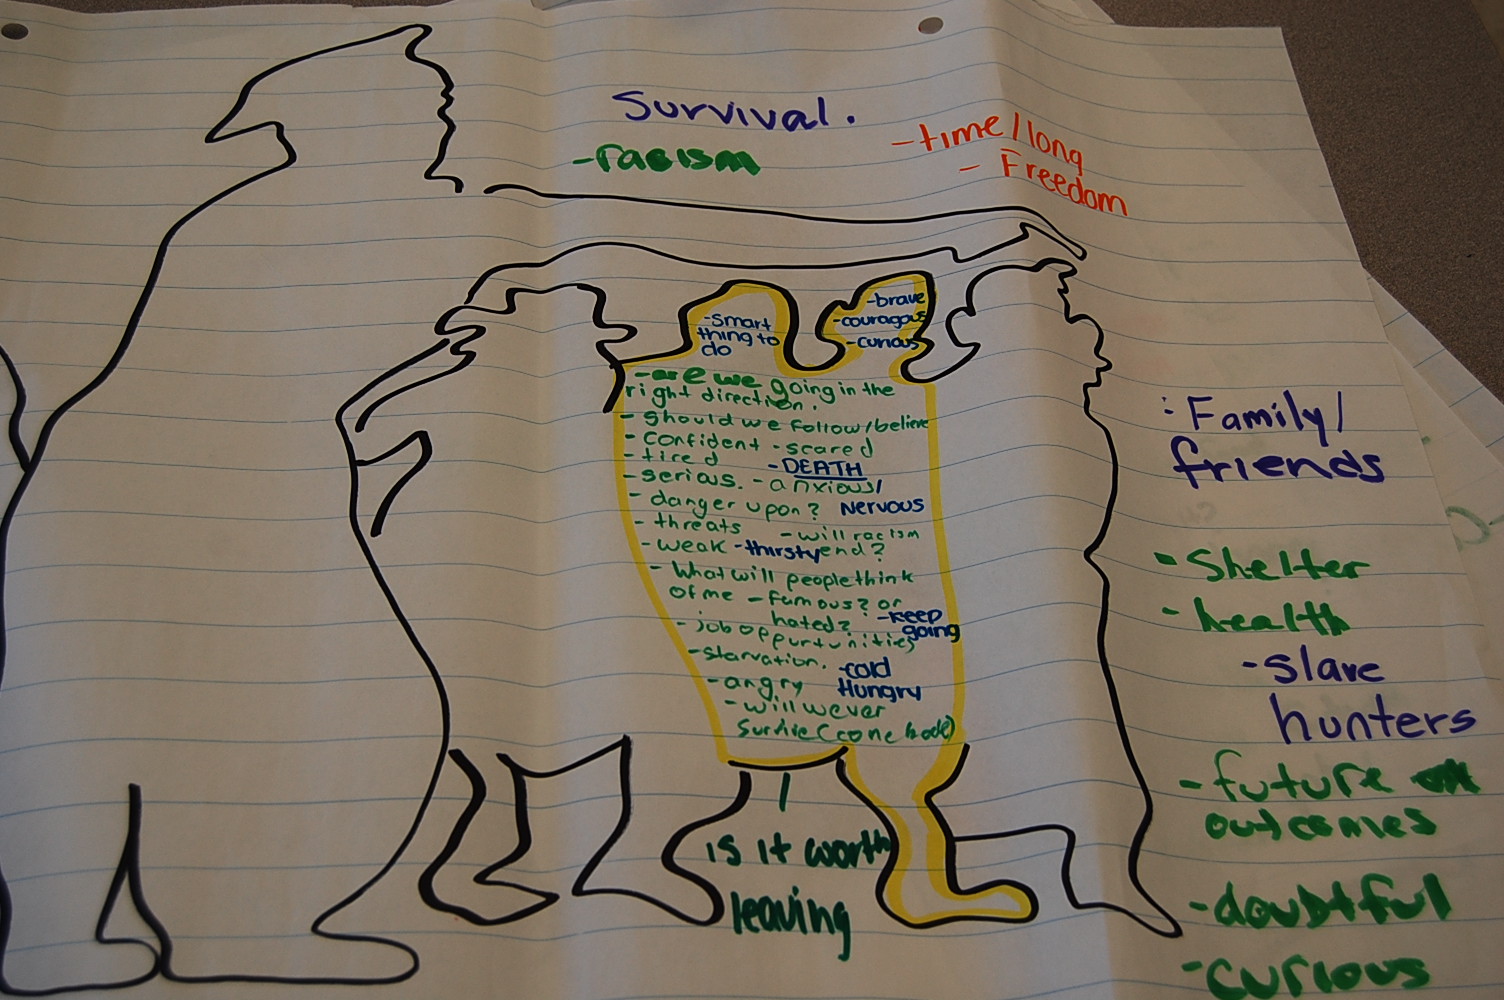 Survival.
-racism
-time/long
- Freedom
-smart
thing to
do
-brave
-couragous
-curious
-are we going in the
right direction.
- should we follow/believe
- confident - scared
- tired - DEATH
- serious. - anxious/
- danger upon? Nervous
- threats - will racism
- weak - thirsty end?
- What will people think
of me - famous? or
hated? - keep
going
- job oppurtunities
- starvation. - cold
- angry Hungry
- will we ever
Survive
is it worth
leaving
: Family/
friends
- Shelter
- health
- slave
hunters
- future
outcomes
- doubtful
- curious